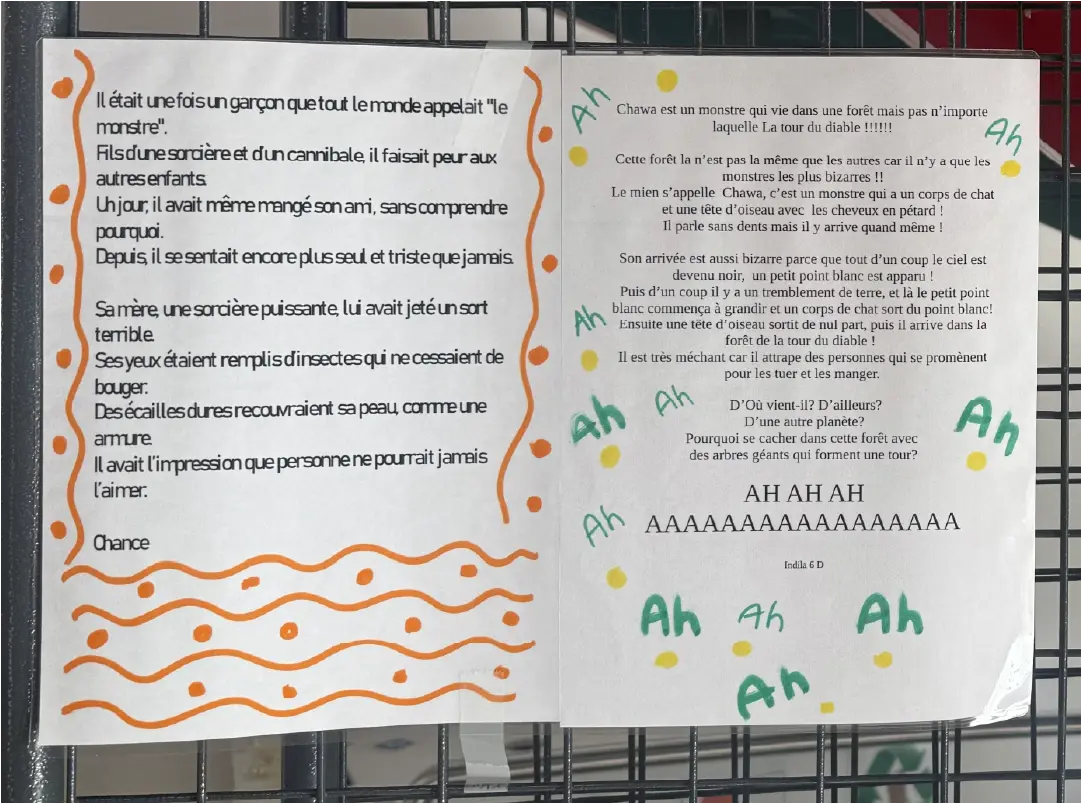 Il était une fois un garçon que tout le monde appelait "le
monstre".
Fils d'une sorcière et d'un cannibale, il faisait peur aux
autres enfants.
Un jour, il avait même mangé son ami, sans comprendre
pourquoi.
Depuis, il se sentait encore plus seul et triste que jamais.
Sa mère, une sorcière puissante, lui avait jeté un sort
terrible.
Ses yeux étaient remplis d'insectes qui ne cessaient de
bouger.
Des écailles dures recouvraient sa peau, comme une
armure.
Il avait l'impression que personne ne pourrait jamais
l'aimer.
Chance
Ah
Chawa est un monstre qui vie dans une forêt mais pas n'importe
laquelle La tour du diable !!!!!!
Ah
Cette forêt la n'est pas la même que les autres car il n'y a que les
monstres les plus bizarres !!
Le mien s'appelle Chawa, c'est un monstre qui a un corps de chat
et une tête d'oiseau avec les cheveux en pétard !
Il parle sans dents mais il y arrive quand même !
Son arrivée est aussi bizarre parce que tout d'un coup le ciel est
devenu noir, un petit point blanc est apparu !
Puis d'un coup il y a un tremblement de terre, et là le petit point
blanc commença à grandir et un corps de chat sort du point blanc!
Ah
Ensuite une tête d'oiseau sortit de nul part, puis il arrive dans la
forêt de la tour du diable !
Il est très méchant car il attrape des personnes qui se promènent
pour les tuer et les manger.
Ah
Ah
D'Où vient-il? D'ailleurs?
D'une autre planète?
Pourquoi se cacher dans cette forêt avec
des arbres géants qui forment une tour?
Ah
AH AH AH
Ah
AAAAAAAAAAAAAAAAA
Indila 6 D
Ah
Ah
Ah
Ah